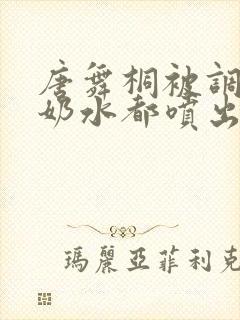 唐舞桐被調
奶水都噴出
瑪麗亞菲利克